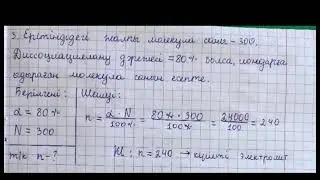 5. Ерітіндідегі жалпы молекула саны - 300.
Диссоциациялану дәрежесі = 80% болса, иондарға
ыдыраған молекула санын есепте.
Берілгені: Шешуі:
α = 80% n = α · N / 100% = 80% · 300 / 100% = 24000 / 100 = 240
N = 300
т/к n - ? Ж: n = 240 → күшті электролит